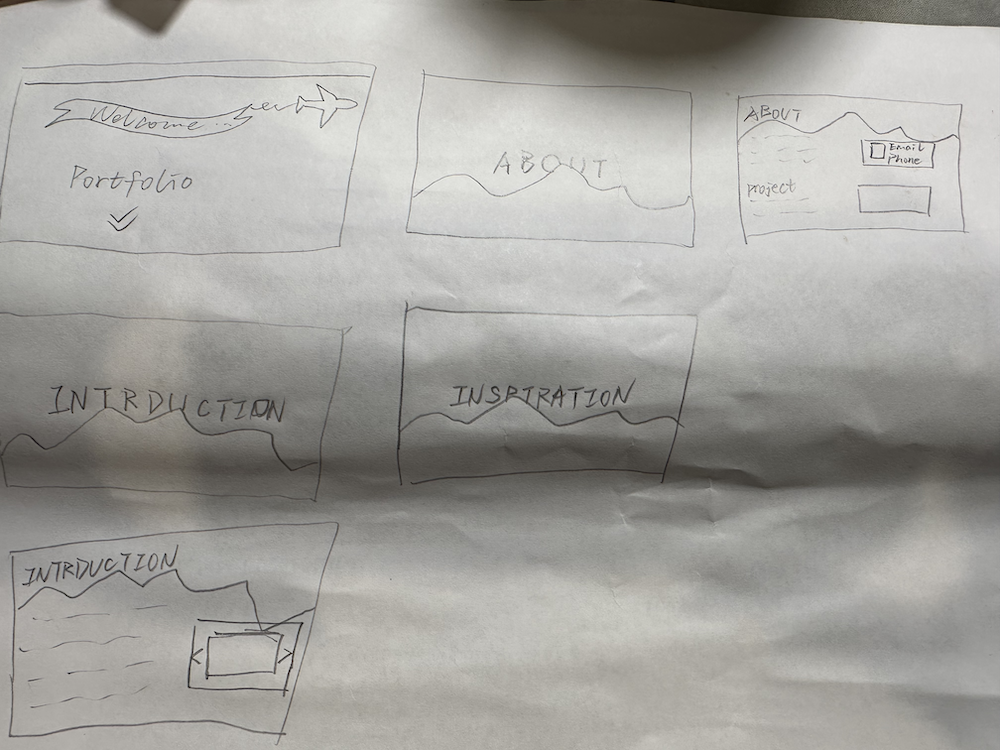 Welcome...
Portfolio
ABOUT
ABOUT
Email
Phone
project
INTRDUCTION
INSPIRATION
INTRDUCTION